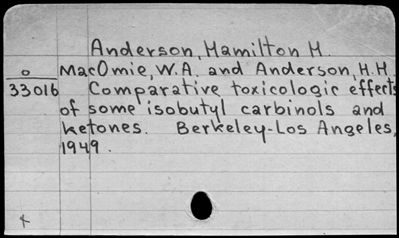 Anderson, Hamilton H.
o MacOmie, W.A. and Anderson, H.H.
33016 Comparative toxicologic effects
of some isobutyl carbinols and
ketones. Berkeley-Los Angeles,
1949.